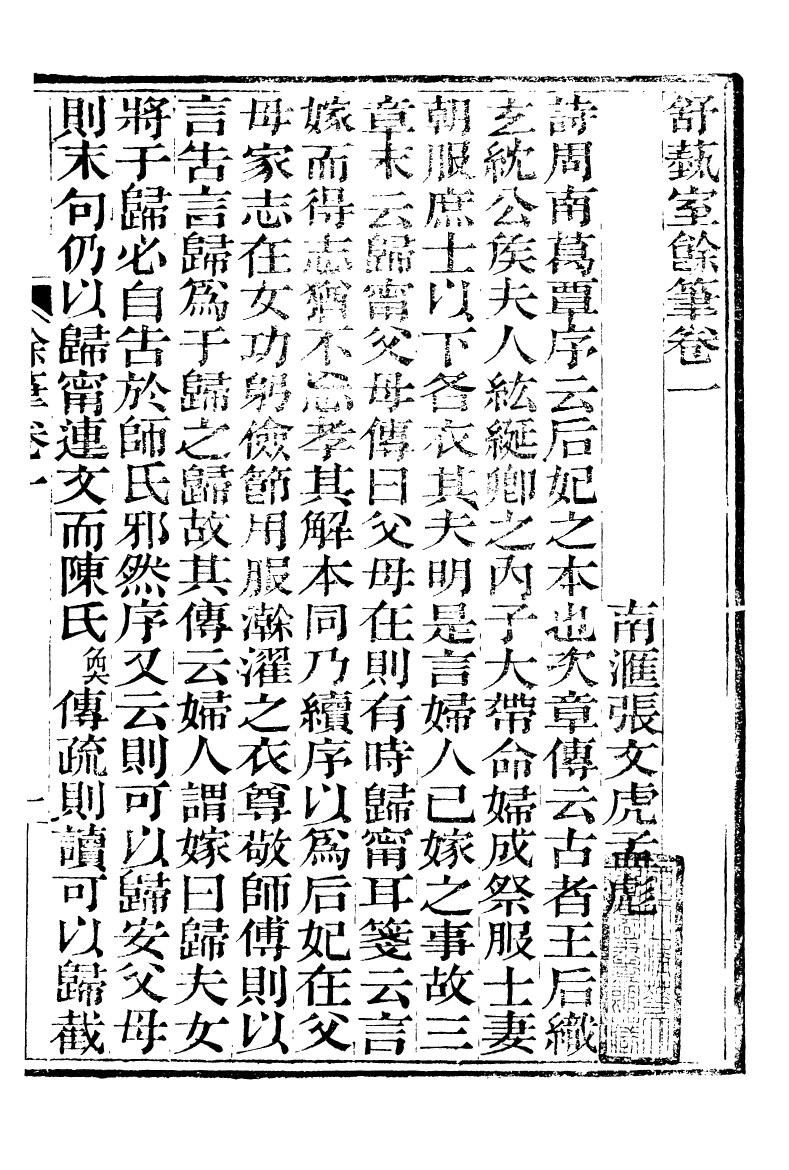 舒蓺室餘筆卷一
南滙張文虎孟彪
詩周南葛覃序云后妃之本也次章傳云古者王后織
玄紞公矦夫人紘綖卿之內子大帶命婦成祭服士妻
朝服庶士以下各衣其夫明是言婦人已嫁之事故三
章末云歸甯父母傳曰父母在則有時歸甯耳箋云言
嫁而得志猶不忘孝其解本同乃續序以爲后妃在父
母家志在女功躬儉節用服澣濯之衣尊敬師傅則以
言告言歸爲于歸之歸故其傳云婦人謂嫁曰歸夫女
將于歸必自告於師氏邪然序又云則可以歸安父母
則末句仍以歸甯連文而陳氏奐傳疏則讀可以歸截
餘筆卷一
一